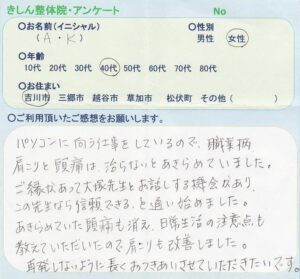 きしん整体院・アンケート No
○お名前(イニシャル) ○性別
( A・K ) 男性 女性
○年齢
10代 20代 30代 40代 50代 60代 70代 80代
○お住まい
吉川市 三郷市 越谷市 草加市 松伏町 その他( )
○ご利用頂いたご感想をお願いします。
パソコンに向う仕事をしているので、職業柄
肩こりと頭痛は、治らないとあきらめていました。
ご縁があって大塚先生とお話しする機会があり、
この先生なら信頼できる、と通い始めました。
あきらめていた頭痛も消え、日常生活の注意点も
教えていただいたので肩こりも改善しました。
再発しないように長くおつきあいさせていただきたいです。